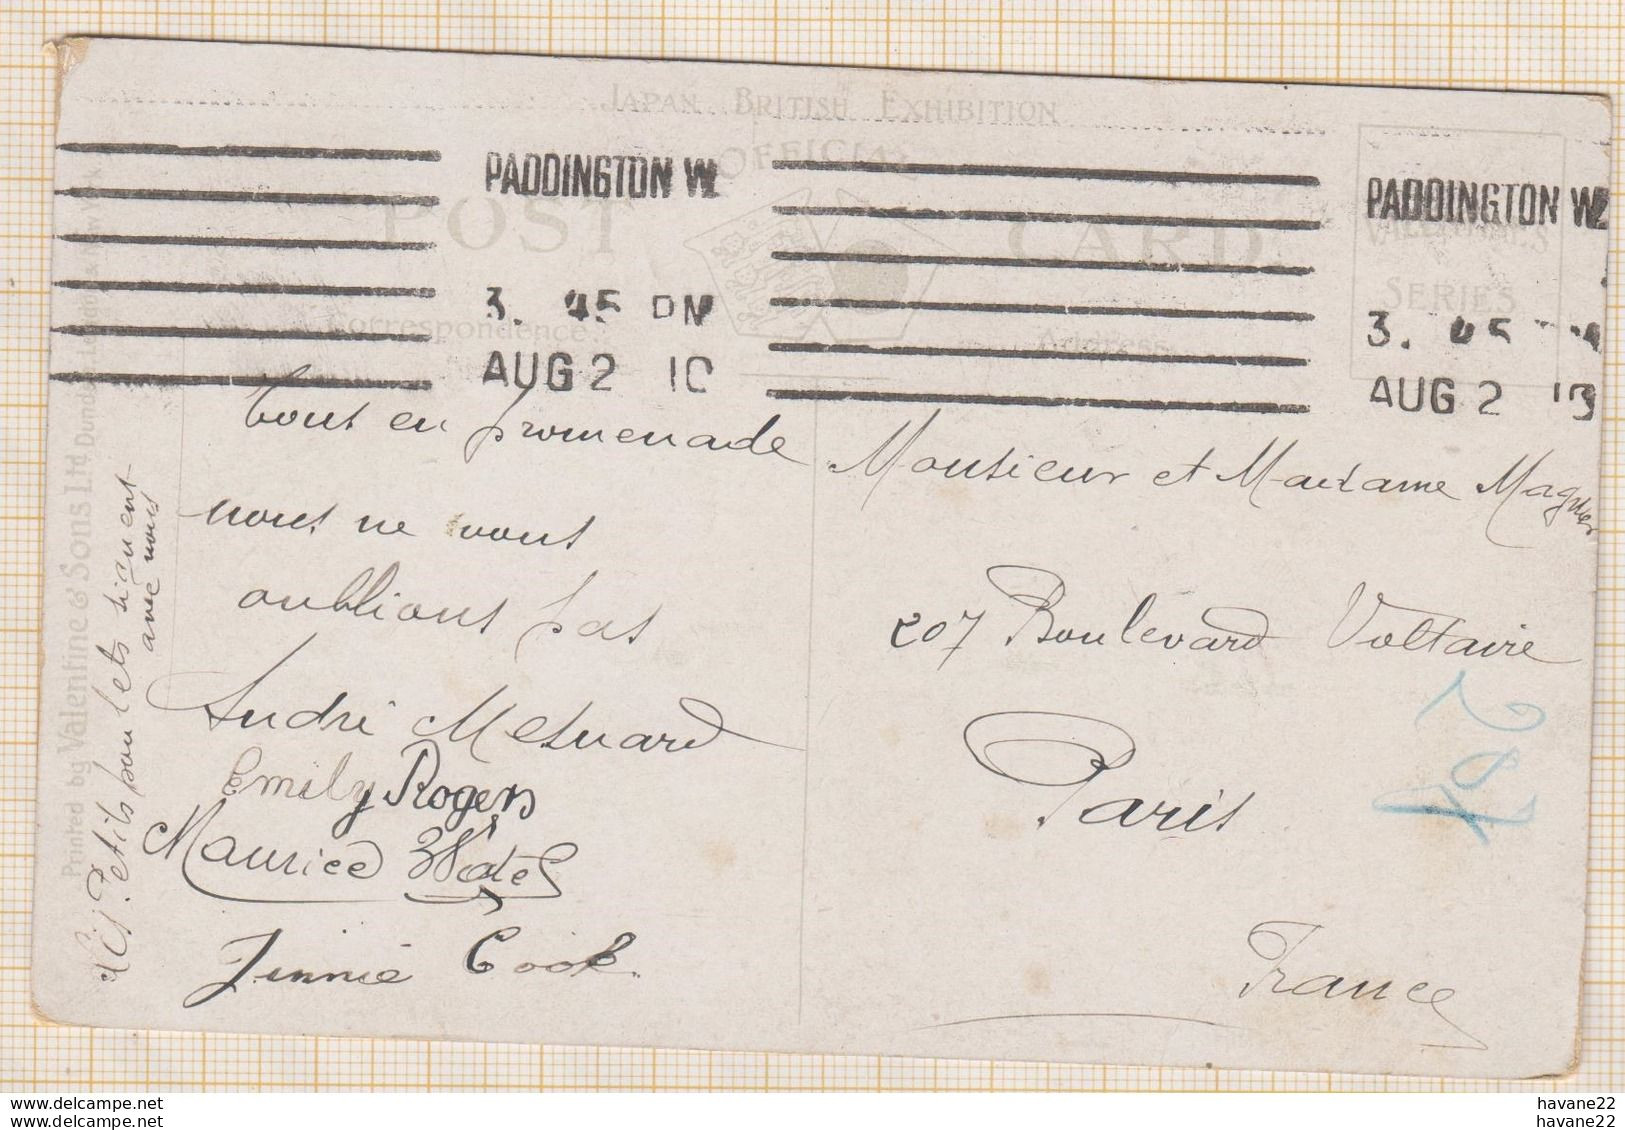 JAPAN BRITISH EXHIBITION
OFFICIAL
POST CARD
PADDINGTON W.
3. 45 PM
AUG 2 10
PADDINGTON W.
3. 45
AUG 2 10
VALENTINE'S
SERIES
Correspondence
Address
tout en promenade
nous ne vous
oublions pas
André Mesnard
Emily Rogers
Maurice
Jinnie Cook
Petits
avec nous
Printed by Valentine & Sons Ltd, Dundee, London & New York
Monsieur et Madame Magnier
207 Boulevard Voltaire
Paris
France
www.delcampe.net
www.delcampe.net
havane22
havane22